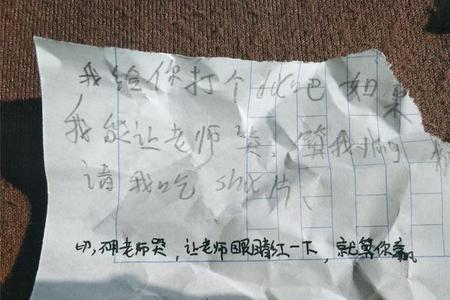 我给你打个 吧 如果
我能让老师哭,算我ying
请我吃 shu片、
切,不用老师哭,让老师眼睛红一下,就算你赢